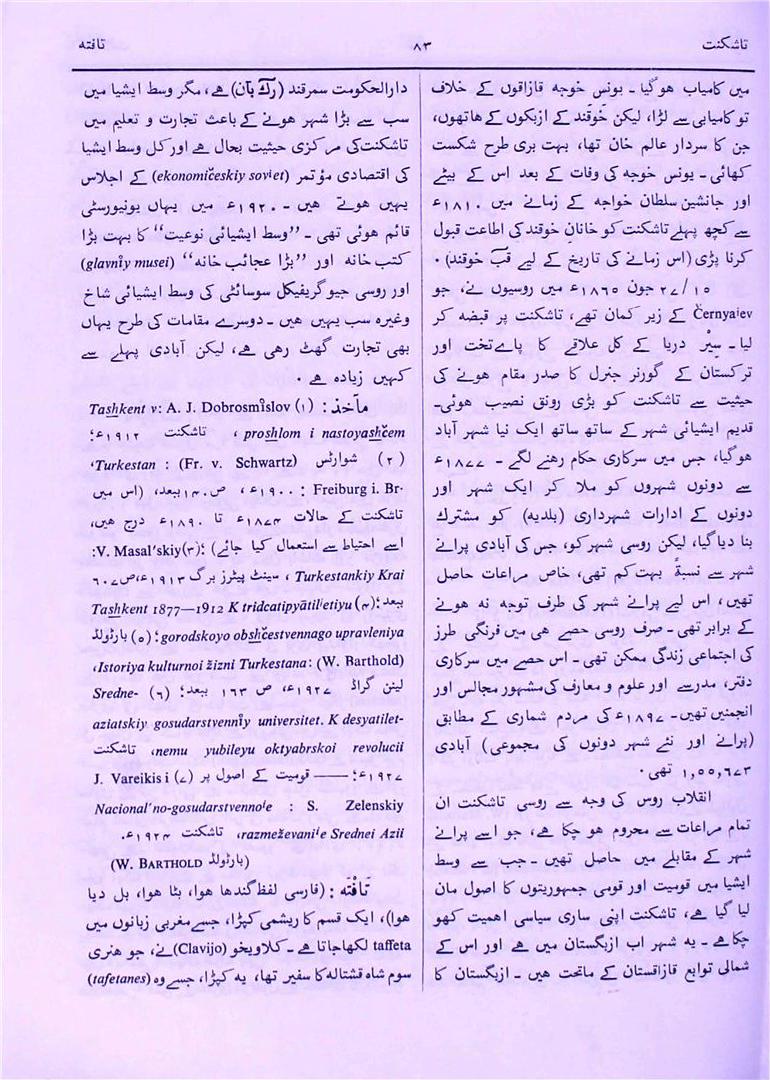 تاشکنت
۸۳
تافته
میں کامیاب ہوگیا ۔ یونس خوجہ قازاقوں کے خلاف
تو کامیابی سے لڑا، لیکن خُوقَند کے ازبکوں کے ہاتھوں،
جن کا سردار عالم خان تھا، بہت بری طرح شکست
کھائی ۔ یونس خوجہ کی وفات کے بعد اس کے بیٹے
اور جانشین سلطان خواجہ کے زمانے میں ۱۸۱۰ء
سے کچھ پہلے تاشکنت کو خاناںِ خوقند کی اطاعت قبول
کرنا پڑی (اس زمانے کی تاریخ کے لیے قبَ خوقند) ۰
۱۵ / ۲۷ جون ۱۸۶۵ء میں روسیوں نے، جو
Černyaiev کے زیر کمان تھے، تاشکنت پر قبضہ کر
لیا ۔ سِیْر دریا کے کل علاقے کا پاے تخت اور
ترکستان کے گورنر جنرل کا صدر مقام ہونے کی
حیثیت سے تاشکنت کو بڑی رونق نصیب ہوئی۔
قدیم ایشیائی شہر کے ساتھ ساتھ ایک نیا شہر آباد
ہوگیا، جس میں سرکاری حکام رہنے لگے ۔ ۱۸۷۷ء
سے دونوں شہروں کو ملا کر ایک شہر اور
دونوں کے ادارات شہرداری (بلدیہ) کو مشترک
بنا دیا گیا، لیکن روسی شہر کو، جس کی آبادی پرانے
شہر سے نسبةً بہت کم تھی، خاص مراعات حاصل
تھیں، اس لیے پرانے شہر کی طرف توجہ نہ ہونے
کے برابر تھی ۔ صرف روسی حصے ہی میں فرنگی طرز
کی اجتماعی زندگی ممکن تھی ۔ اس حصے میں سرکاری
دفتر، مدرسے اور علوم و معارف کی مشہور مجالس اور
انجمنیں تھیں ۔ ۱۸۹۷ء کی مردم شماری کے مطابق
(پرانے اور نئے شہر دونوں کی مجموعی) آبادی
۱,۵۵,۶۷۳ تھی ۰
انقلاب روس کی وجہ سے روسی تاشکنت ان
تمام مراعات سے محروم ہو چکا ہے، جو اسے پرانے
شہر کے مقابلے میں حاصل تھیں ۔ جب سے وسط
ایشیا میں قومیت اور قومی جمہوریتوں کا اصول مان
لیا گیا ہے، تاشکنت اپنی ساری سیاسی اہمیت کھو
چکا ہے ۔ یہ شہر اب ازبگستان میں ہے اور اس کے
شمالی توابع قازاقستان کے ماتحت ہیں ۔ ازبگستان کا
دارالحکومت سمرقند (رَکَ بآن) ہے، مگر وسط ایشیا میں
سب سے بڑا شہر ہونے کے باعث تجارت و تعلیم میں
تاشکنت کی مرکزی حیثیت بحال ہے اور کل وسط ایشیا
کی اقتصادی مؤتمر (ekonomičeskiy soviet) کے اجلاس
یہیں ہوتے ہیں ۔ ۱۹۲۰ء میں یہاں یونیورسٹی
قائم ہوئی تھی ۔ ”وسط ایشیائی نوعیت“ کا بہت بڑا
کتب خانہ اور ”بڑا عجائب خانہ“ (glavnîy musei)
اور روسی جیو گریفیکل سوسائٹی کی وسط ایشیائی شاخ
وغیرہ سب یہیں ہیں ۔ دوسرے مقامات کی طرح یہاں
بھی تجارت گھٹ رہی ہے، لیکن آبادی پہلے سے
کہیں زیادہ ہے ۰
مآخذ : (۱) Tashkent v: A. J. Dobrosmîslov
proshlom i nastoyashčem، تاشکنت ۱۹۱۲ء؛
(۲) شوارٹس (Fr. v. Schwartz) : Turkestan،
Freiburg i. Br- : ۱۹۰۰ء، ص ۱۴۰ ببعد، (اس میں
تاشکنت کے حالات ۱۸۷۴ء تا ۱۸۹۰ء درج ہیں،
اسے احتیاط سے استعمال کیا جائے) ؛(۳) V. Masal'skiy:
Turkestankiy Krai، سینٹ پیٹرز برگ ۱۹۱۳ء،ص ۶۰۷
ببعد؛(۴) Tashkent 1877—1912 K tridcatipyātiletiyu
gorodskoyo obshčestvennago upravleniya؛ (۵) بارٹولڈ
(W. Barthold) : Istoriya kulturnoi žizni Turkestana،
لینن گراڈ ۱۹۲۷ء، ص ۱۶۳ ببعد؛ (۶) Sredne-
aziatskiy gosudarstvennîy universitet. K desyatilet-
nemu yubileyu oktyabrskoi revolucii، تاشکنت
۱۹۲۷ء؛ —— قومیت کے اصول پر (۷) J. Vareikis i
Nacional'no-gosudarstvennoie : S. Zelenskiy
razmeževaniie Srednei Azii، تاشکنت ۱۹۲۴ء.
(بارٹولڈ W. BARTHOLD)
تافْتَہ : (فارسی لفظ گندھا ہوا، بٹا ہوا، بل دیا
ہوا)، ایک قسم کا ریشمی کپڑا، جسے مغربی زبانوں میں
taffeta لکھا جاتا ہے ۔ کلاویخو (Clavijo) نے، جو ہنری
سوم شاہ قشتالہ کا سفیر تھا، یہ کپڑا، جسے وہ (tafetanes)